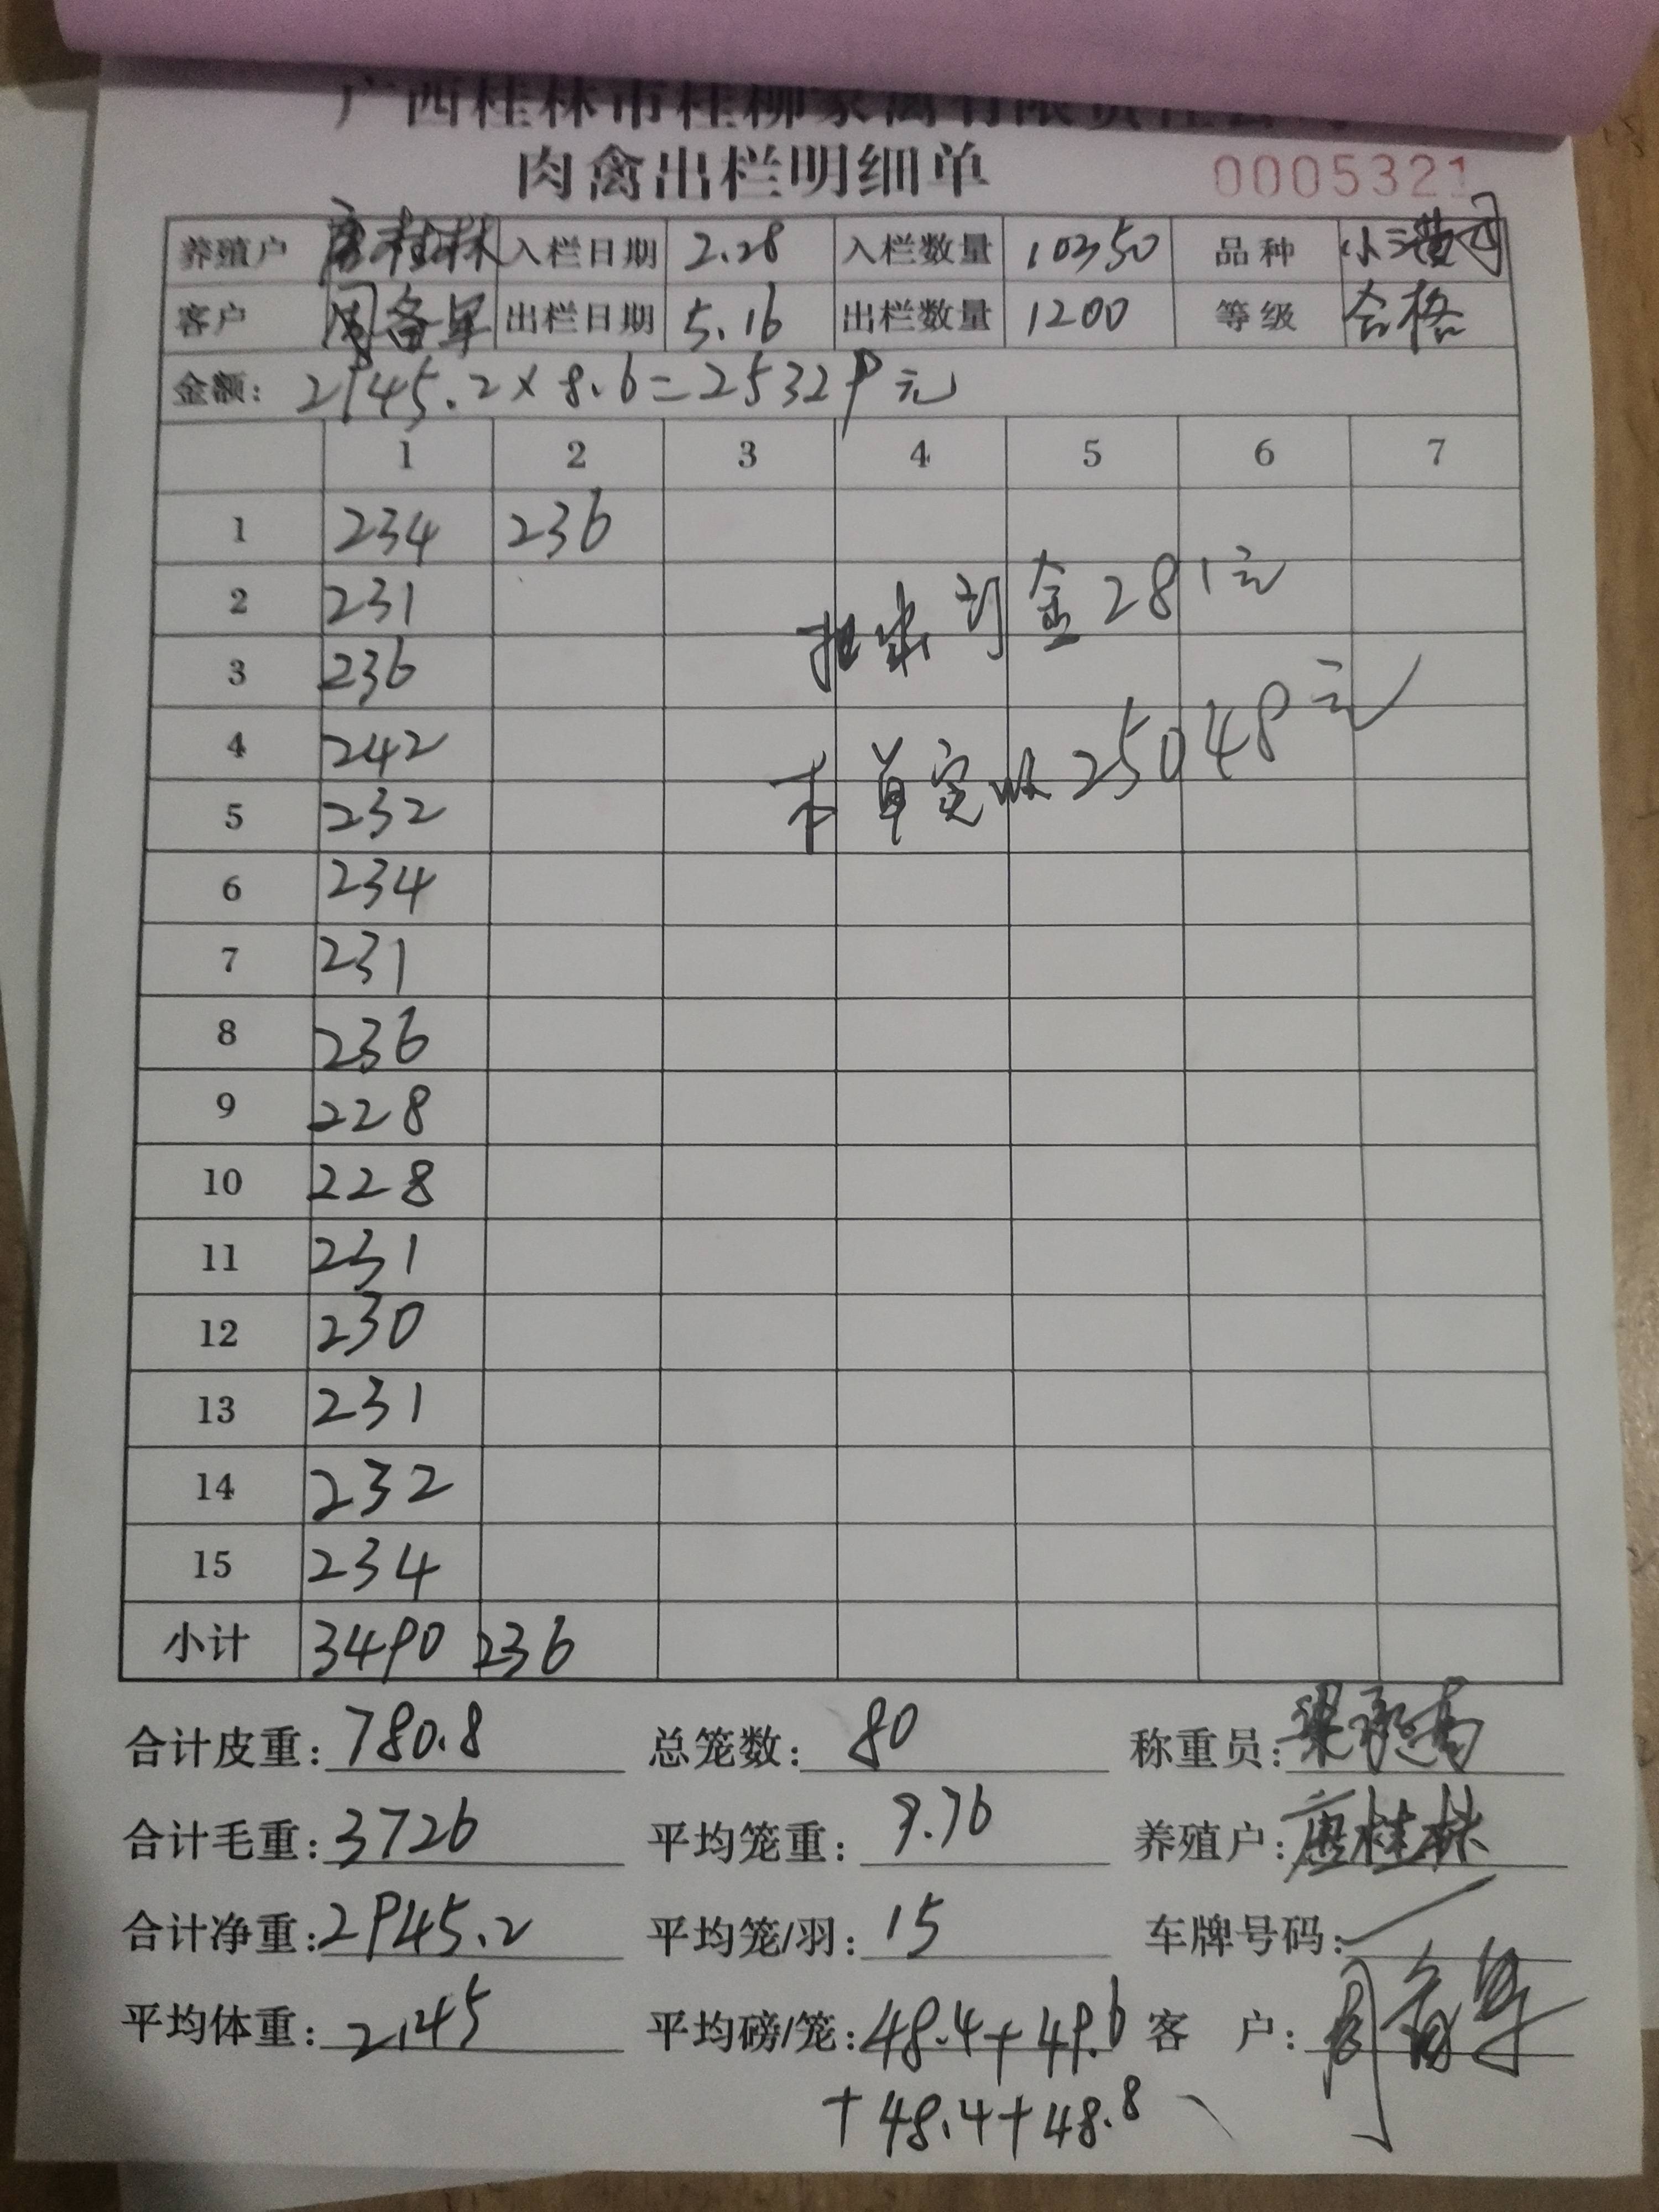 广西桂林市桂柳家禽有限责任公司
肉禽出栏明细单 0005321
养殖户 唐桂林 入栏日期 2.28 入栏数量 10350 品种
客户 出栏日期 5.16 出栏数量 1200 等级 合格
金额: 2945.2×8.6=25329元
1 2 3 4 5 6 7
1 234 236
2 231
金281元
3 236
4 242
本单实收25048元
5 232
6 234
7 231
8 236
9 228
10 228
11 231
12 230
13 231
14 232
15 234
小计 3490 236
合计皮重: 780.8 总笼数: 80 称重员:
合计毛重: 3726 平均笼重: 9.76 养殖户: 唐桂林
合计净重: 2945.2 平均笼/羽: 15 车牌号码:
平均体重: 2.45 平均磅/笼: 48.4+49.6 客 户:
+48.4+48.8